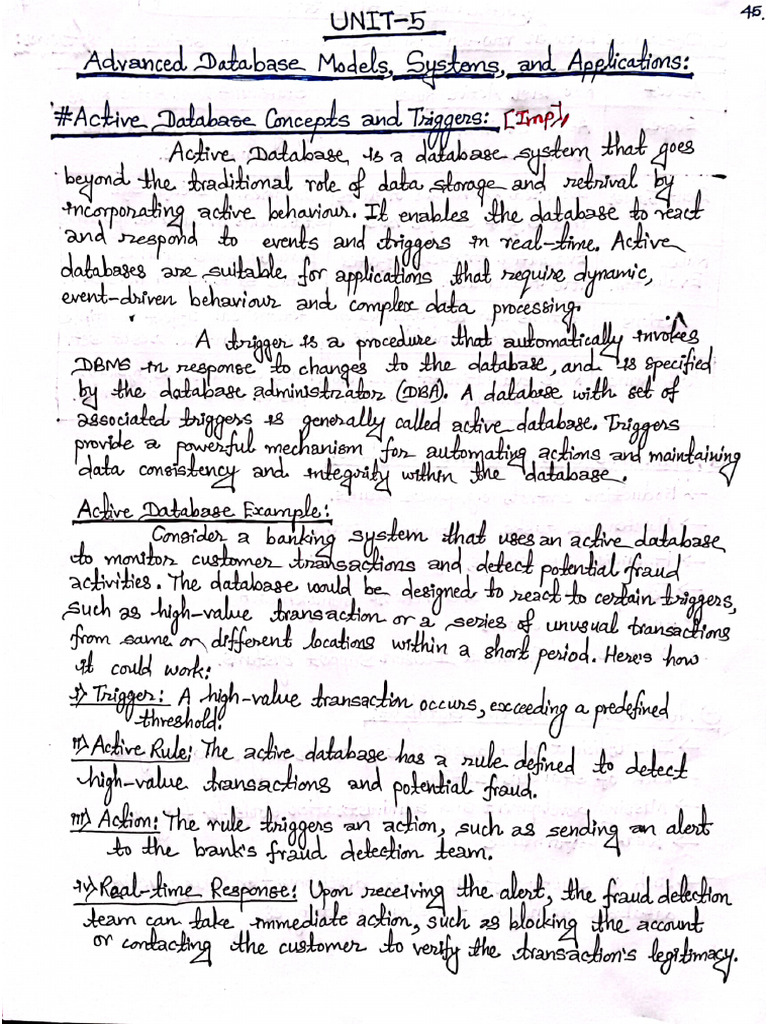 45.
UNIT-5
Advanced Database Models, Systems, and Applications:
#Active Database Concepts and Triggers: [Imp]
Active Database is a database system that goes
beyond the traditional role of data storage and retrival by
incorporating active behaviour. It enables the database to react
and respond to events and triggers in real-time. Active
databases are suitable for applications that require dynamic,
event-driven behaviour and complex data processing.
A trigger is a procedure that automatically invokes
DBMS in response to changes to the database, and is specified
by the database administrator (DBA). A database with set of
associated triggers is generally called active database. Triggers
provide a powerful mechanism for automating actions and maintaining
data consistency and integrity within the database.
Active Database Example:
Consider a banking system that uses an active database
to monitor customer transactions and detect potential fraud
activities. The database would be designed to react to certain triggers,
such as high-value transaction or a series of unusual transactions
from same or different locations within a short period. Here's how
it could work:
i) Trigger: A high-value transaction occurs, exceeding a predefined
threshold.
ii) Active Rule: The active database has a rule defined to detect
high-value transactions and potential fraud.
iii) Action: The rule triggers an action, such as sending an alert
to the bank's fraud detection team.
iv) Real-time Response: Upon receiving the alert, the fraud detection
team can take immediate action, such as blocking the account
or contacting the customer to verify the transaction's legitimacy.